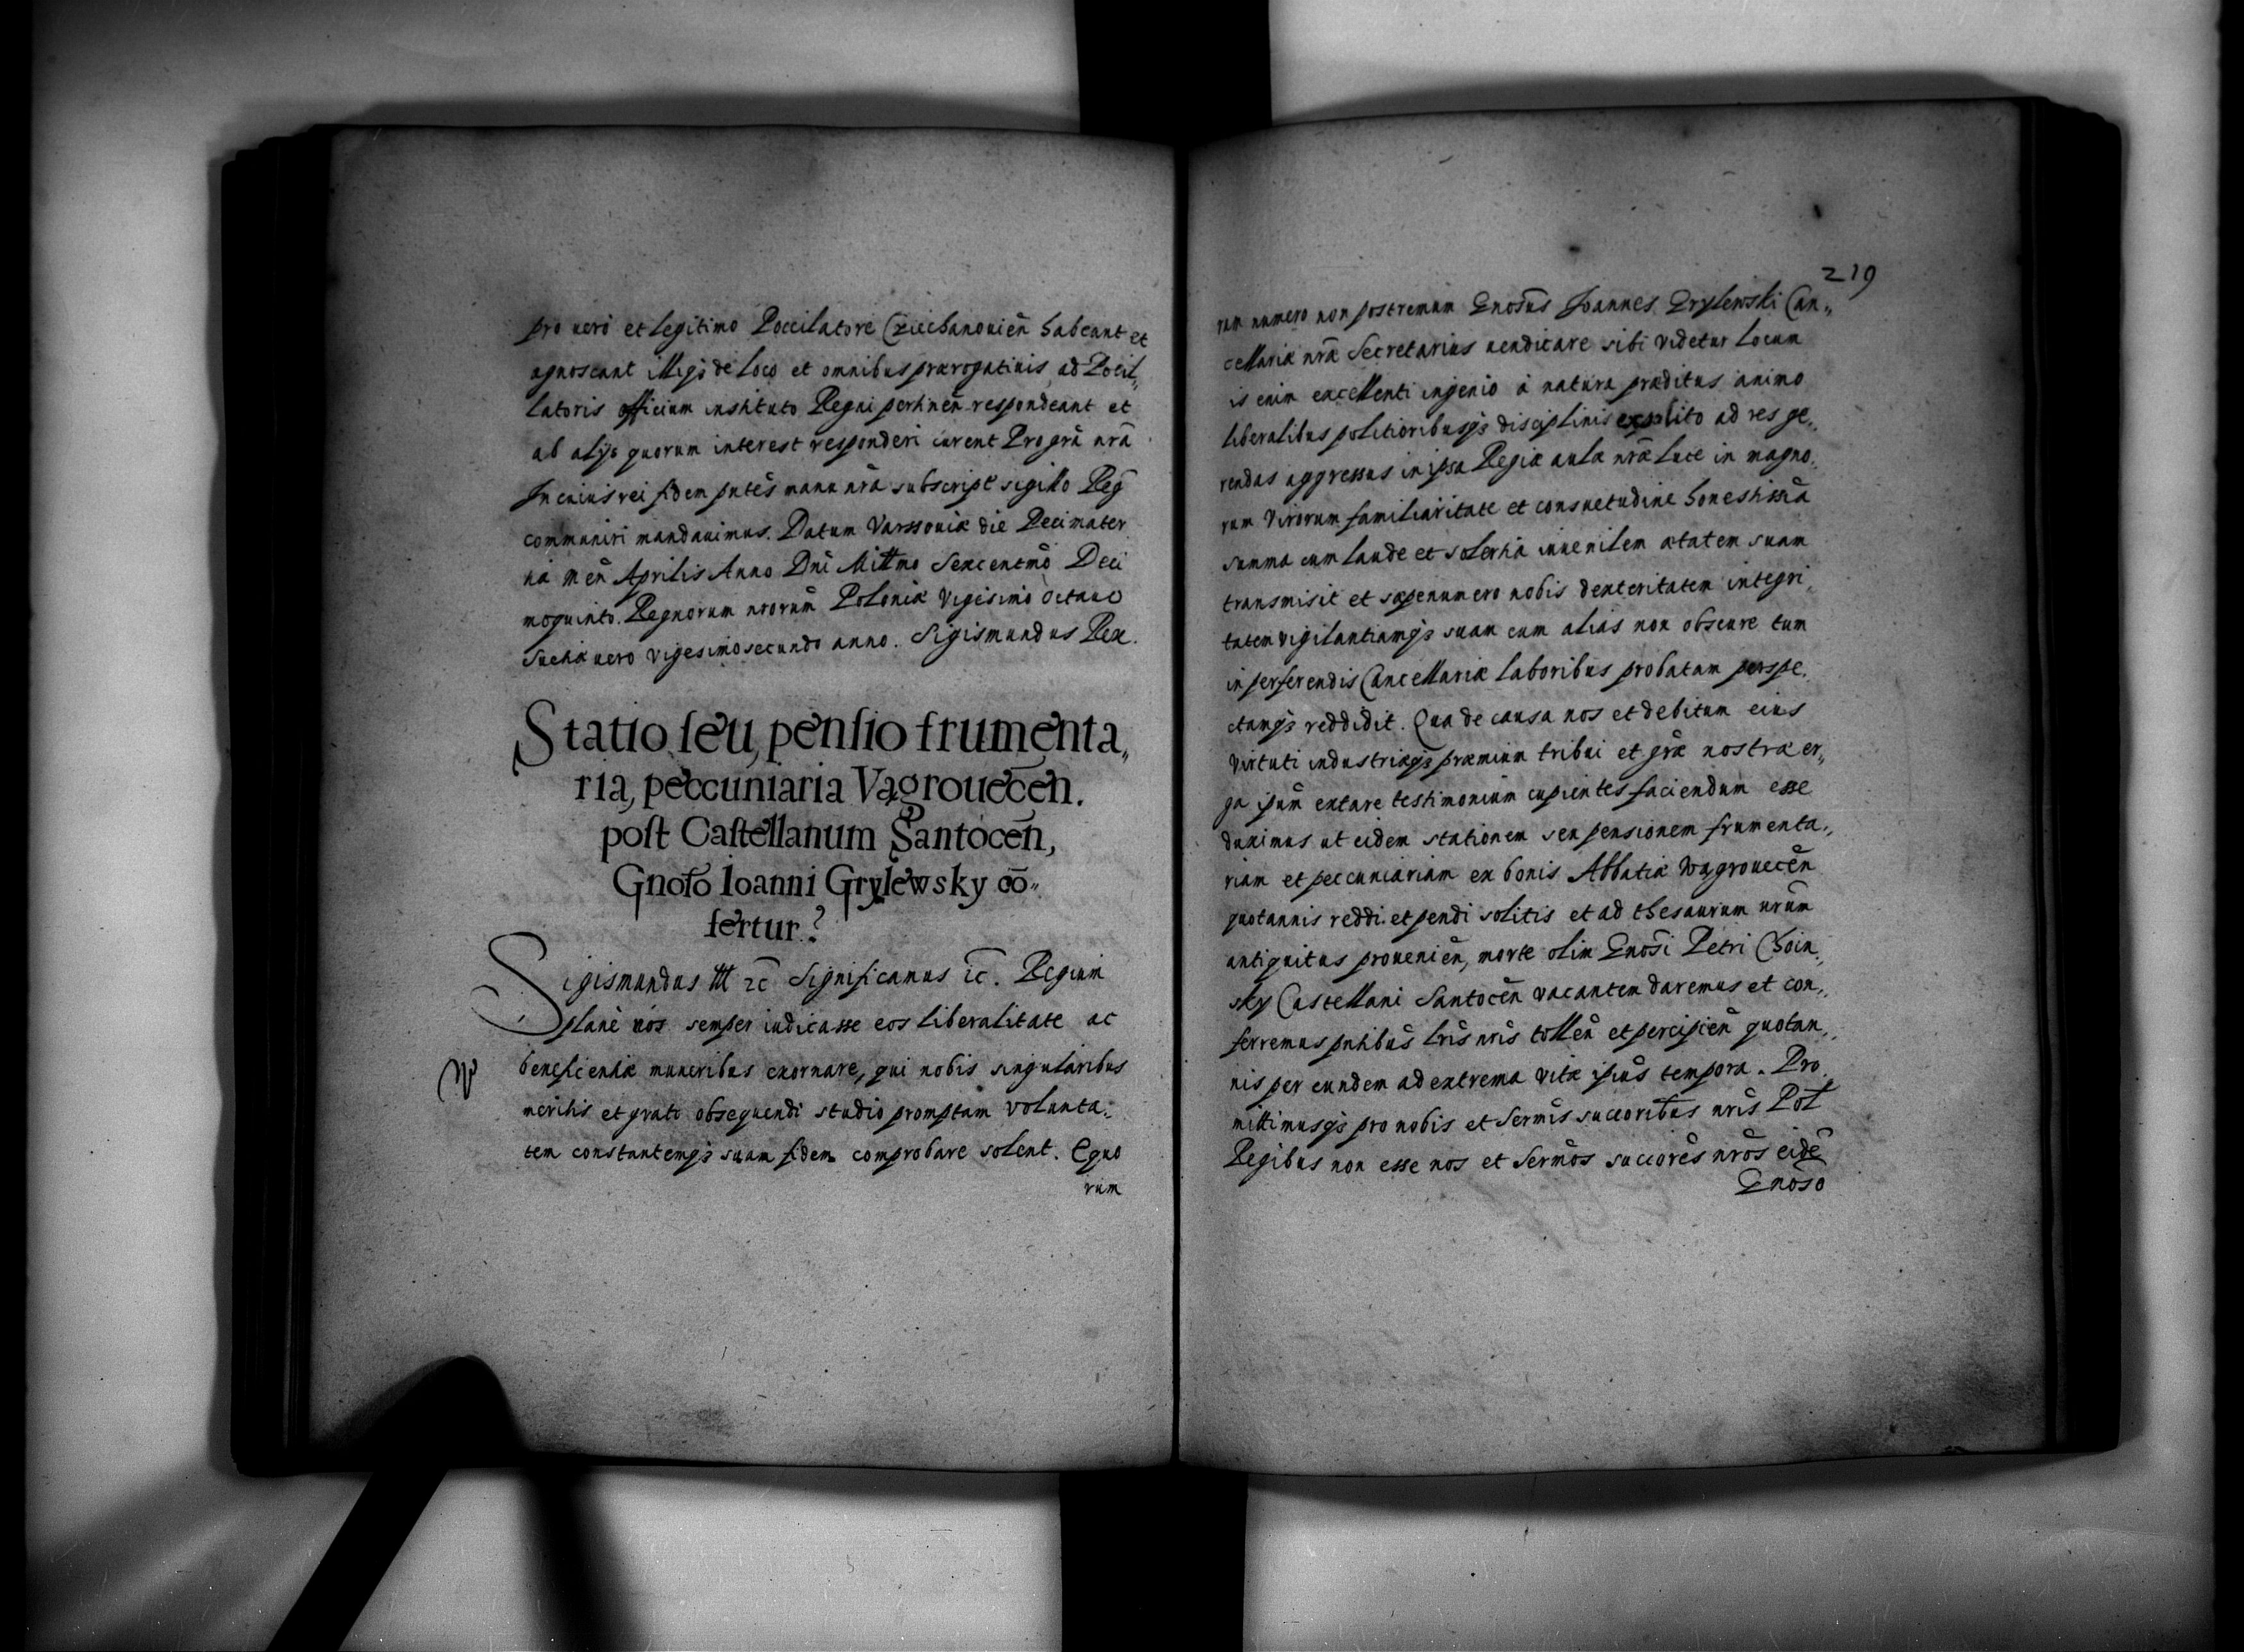 pro uero et legitimo Poccilatore Cziechanouien̄ habeant et
agnoscant illiq3 de loco et omnibus prærogatiuis ad Pocil„
latoris officium instituto Regni pertinen̄ respondeant et
ab alijs quorum interest responderi curent Pro grā nrā
In cuius rei fidem pntēs manu nrā subscript sigillo Reḡ
communiri mandauimus. Datum Varssouiæ die Decimater
tia men̄ Aprilis Anno Dnī Millmo Sexcentmō Deci
moquinto. Regnorum nrorum̄ Poloniæ Vigesimo Octauo
Suetiæ uero Vigesimosecundo anno. Sigismundus Rex.
Statio seu, pensio frumenta„
ria, peccuniaria Vagrouecen̄.
post Castellanum Santocen̄,
Gnoso Ioanni Grylewsky cō„
fertur.
Sigismundus III zc̄ Significamus ic̄. Regium
plane nos semper iudicasse eos liberalitate ac
beneficentiæ muneribus exornare, qui nobis singularibus
meritis et grato obsequendi studio promptam volunta„
tem constantemq3 suam fidem comprobare solent. Equo
rum
219
rum numero non postremum Gnosūs Joannes Grylewski Can„
cellariæ nrǣ Secretarius uendicare sibi Videtur locum
is enim excellenti ingenio à natura præditus animo
liberalibus politioribusq3 disciplinis expolito ad res ge„
rendas aggressus in ipsa Regiæ aulæ nrǣ luce in magno„
rum Virorum familiaritate et consuetudine honestissīa
summa cum laude et solertia iuuenilem ætatem suam
transmisit et sæpenumero nobis dexteritatem integri„
tatem vigilantiamq3 suam cum alias non obscure tum
in perferendis Cancellariæ laboribus probatam perspe„
ctamq3 reddidit. Qua de causa nos et debitum eius
Virtuti industriæq3 præmium tribui et grǣ nostræ er„
ga ipsum̄ extare testimonium cupientes faciendum esse
duximus ut eidem stationem seu pensionem frumenta„
riam et peccuniariam ex bonis Abbatiæ Wagrouecen̄
quotannis reddi et pendi solitis et ad thesaurum nrum̄
antiquitus prouenien̄, morte olim Gnosī Petri Choin„
sky Castellani Santocen̄ vacantem daremus et con„
ferremus pntibūs lrīs nrīs tollen̄ et percipien̄ quotan„
nis per eundem ad extrema vitæ ipsiūs tempora. Pro
mittimusq3 pro nobis et Sermīs succoribūs nrīs Pol
Regibus non esse nos et Sermōs succorēs nrōs eidē
Gnoso